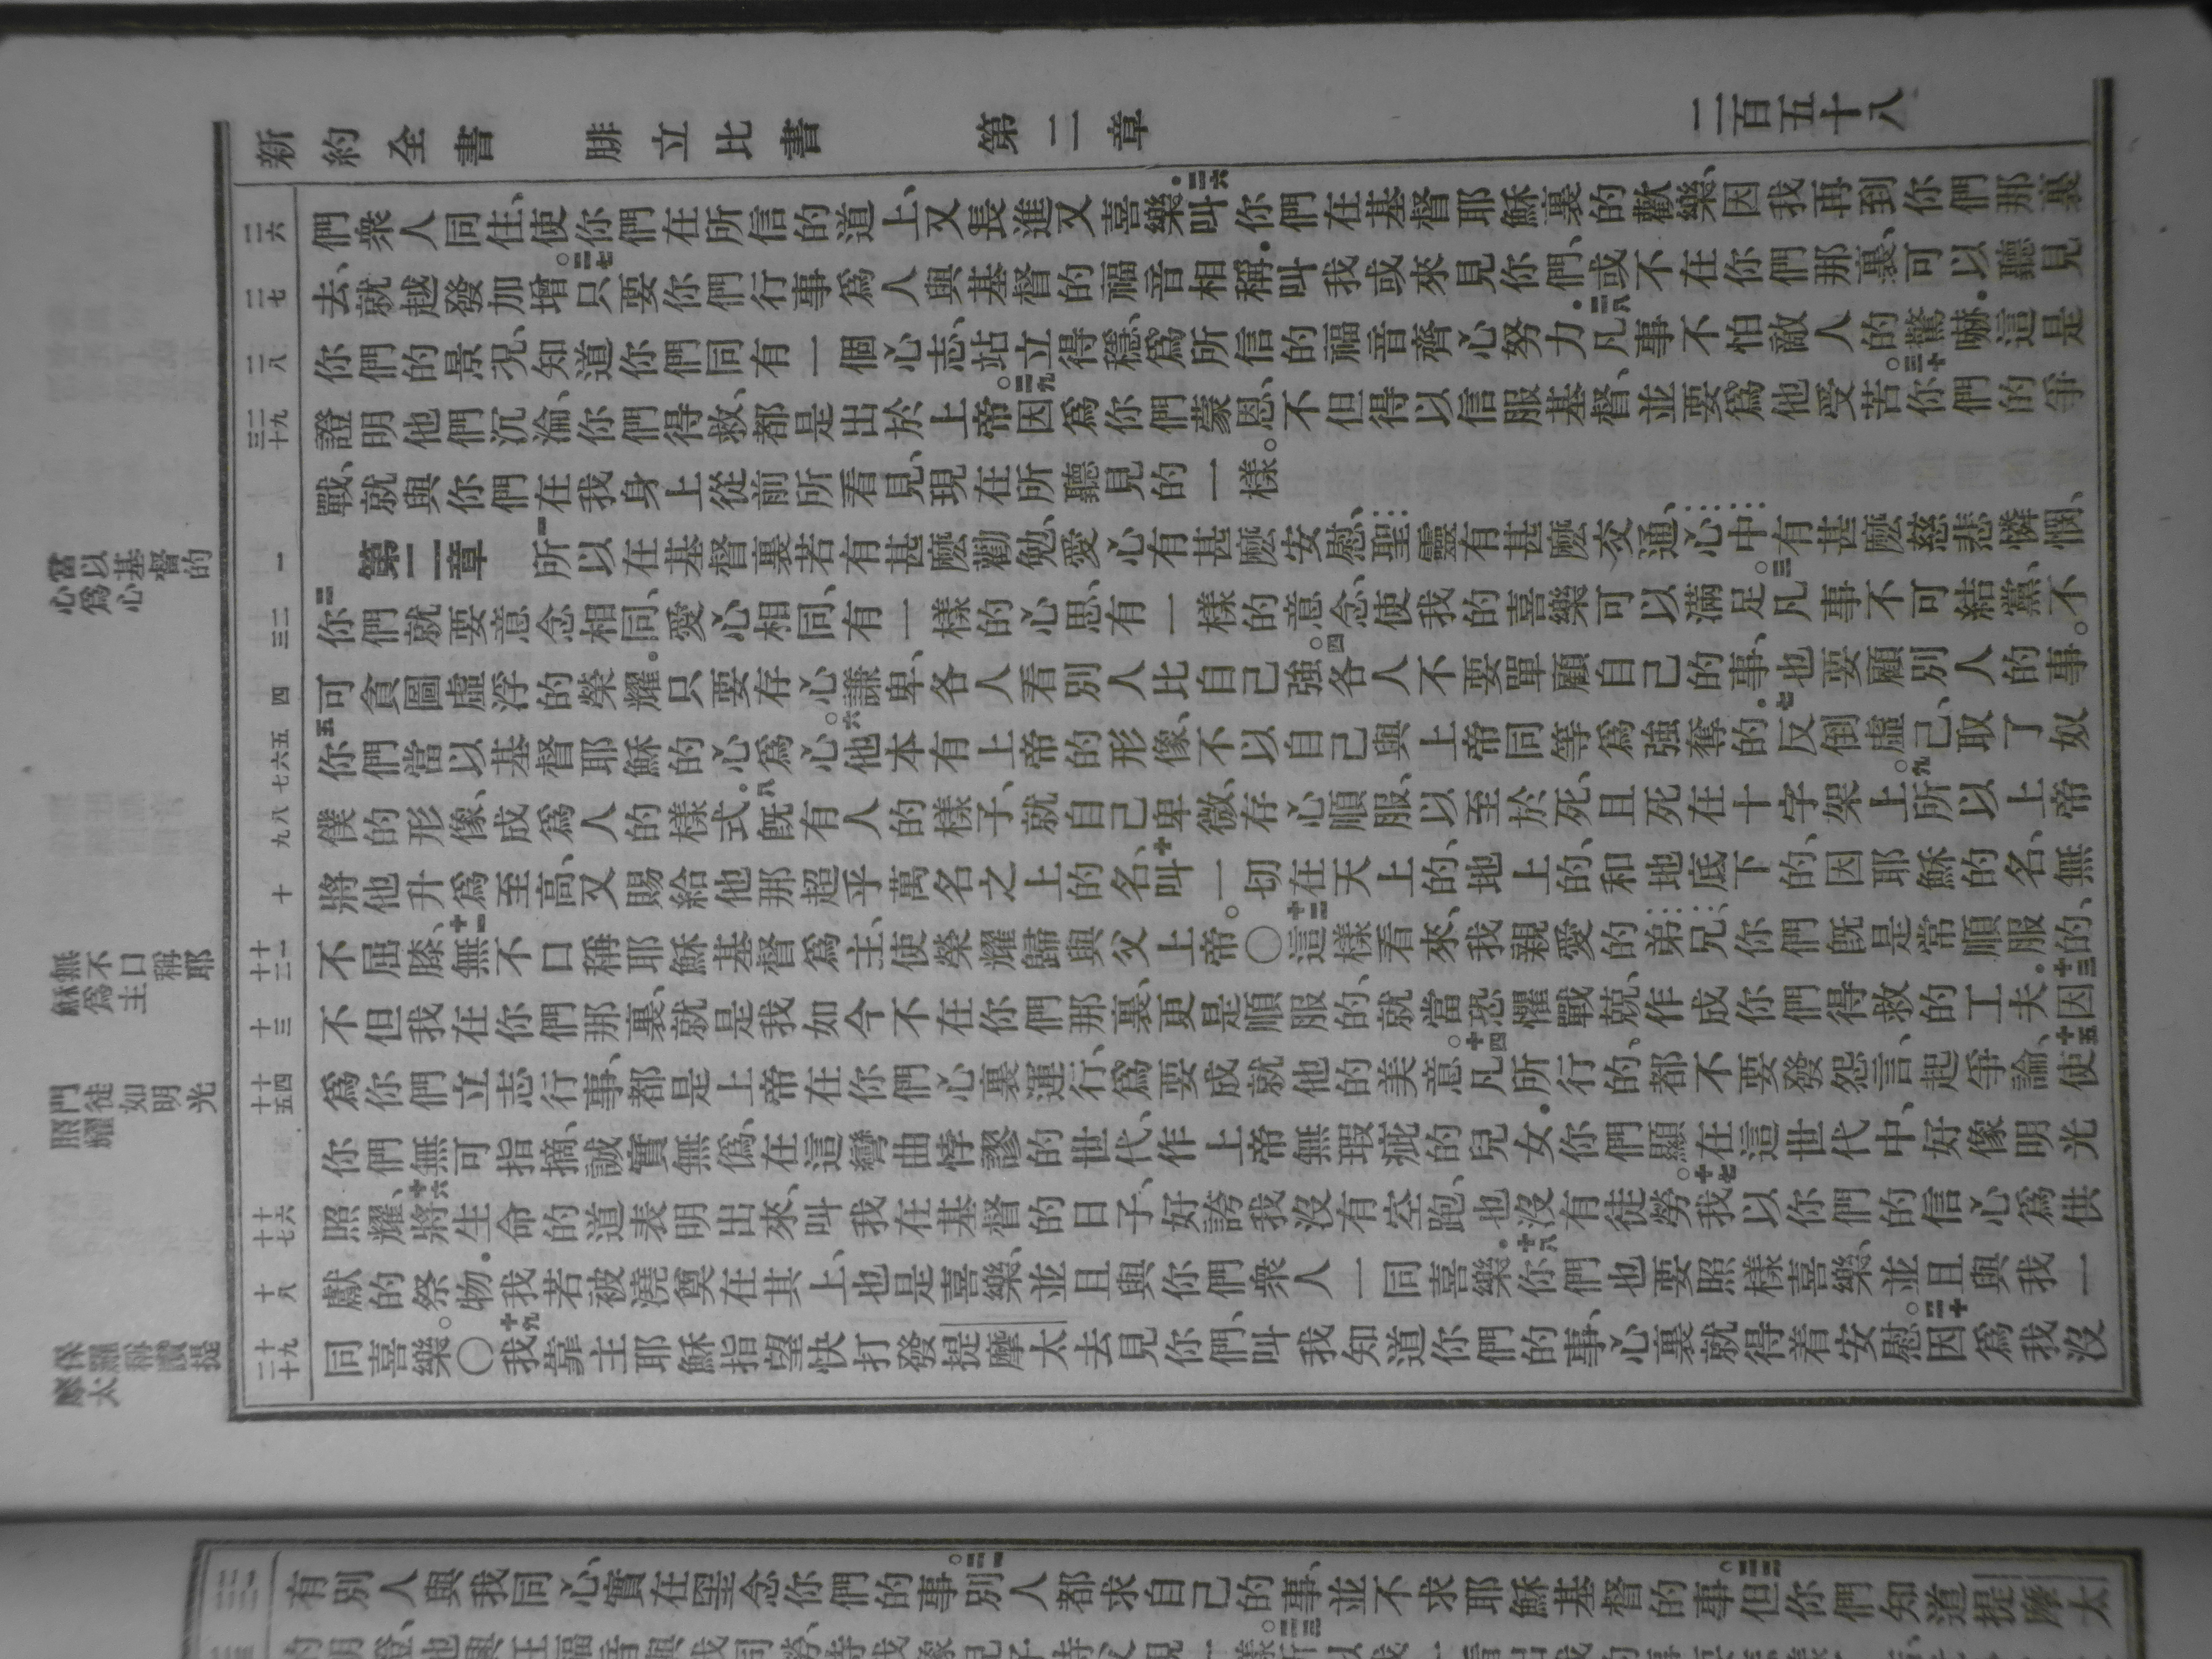 新約全書 腓立比書 第二章 二百五十八
二六 們衆人同住、使你們在所信的道上、又長進又喜樂.二六叫你們在基督耶穌裏的歡樂、因我再到你們那裏
二七 去、就越發加增。二七只要你們行事爲人與基督的福音相稱.叫我或來見你們、或不在你們那裏、可以聽見
二八 你們的景況、知道你們同有一個心志、站立得穩、爲所信的福音齊心努力.二八凡事不怕敵人的驚嚇.這是
二九 三十 證明他們沉淪、你們得救、都是出於上帝。二九因爲你們蒙恩、不但得以信服基督、並要爲他受苦。三十你們的爭
戰、就與你們在我身上從前所看見、現在所聽見的一樣。
一 第二章 一所以在基督裏若有甚麽勸勉、愛心有甚麽安慰、聖靈有甚麽交通、心中有甚麽慈悲憐憫、
二 三 二你們就要意念相同、愛心相同、有一樣的心思、有一樣的意念、使我的喜樂可以滿足。三凡事不可結黨、不
四 可貪圖虛浮的榮耀.只要存心謙卑、各人看別人比自己強。四各人不要單顧自己的事、也要顧別人的事。
五 六 七 五你們當以基督耶穌的心爲心。六他本有上帝的形像、不以自己與上帝同等爲強奪的.七反倒虛己、取了奴
八 九 僕的形像、成爲人的樣式.八旣有人的樣子、就自己卑微、存心順服、以至於死、且死在十字架上。九所以上帝
十 將他升爲至高、又賜給他那超乎萬名之上的名、十叫一切在天上的、地上的、和地底下的、因耶穌的名、無
十一 十二 不屈膝、十一無不口稱耶穌基督爲主、使榮耀歸與父上帝。〇十二這樣看來、我親愛的弟兄、你們旣是常順服的、
十三 不但我在你們那裏、就是我如今不在你們那裏、更是順服的、就當恐懼戰兢、作成你們得救的工夫.十三因
十四 十五 爲你們立志行事、都是上帝在你們心裏運行、爲要成就他的美意。十四凡所行的、都不要發怨言、起爭論、十五使
你們無可指摘、誠實無僞、在這彎曲悖謬的世代、作上帝無瑕疵的兒女.你們顯在這世代中、好像明光
十六 十七 照耀、十六將生命的道表明出來、叫我在基督的日子、好誇我沒有空跑、也沒有徒勞。十七我以你們的信心爲供
十八 獻的祭物.我若被澆奠在其上、也是喜樂、並且與你們衆人一同喜樂.十八你們也要照樣喜樂、並且與我一
十九 二十 同喜樂。〇十九我靠主耶穌指望快打發提摩太去見你們、叫我知道你們的事、心裏就得着安慰。二十因爲我沒
當以基督的
心爲心
無不口稱耶
穌爲主
門徒如明光
照耀
保羅稱讚提
摩太
有別人與我同心、實在罣念你們的事。二一別人都求自己的事、並不求耶穌基督的事。二二但你們知道提摩太